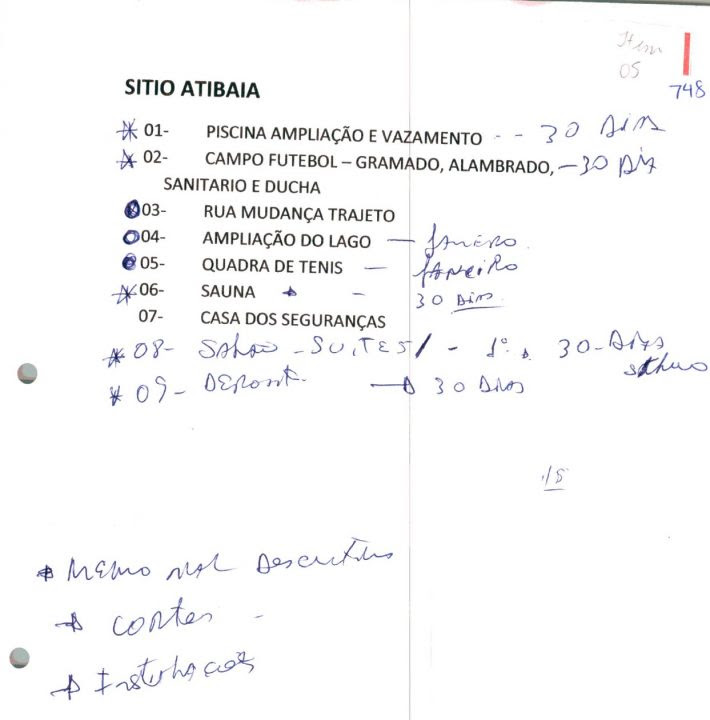 Item
05
748
SITIO ATIBAIA
01- PISCINA AMPLIAÇÃO E VAZAMENTO - - 30 DIAS
02- CAMPO FUTEBOL – GRAMADO, ALAMBRADO, – 30 DIAS
SANITARIO E DUCHA
03- RUA MUDANÇA TRAJETO
04- AMPLIAÇÃO DO LAGO — JANEIRO
05- QUADRA DE TENIS — JANEIRO
06- SAUNA - 30 DIAS
07- CASA DOS SEGURANÇAS
08- SALÃO - SUITES / - 1º 30 - DIAS
09- DEPOSIT. 30 DIAS
15
MEMORIAL DESCRITIVO
CORTES -
INSTALAÇÕES